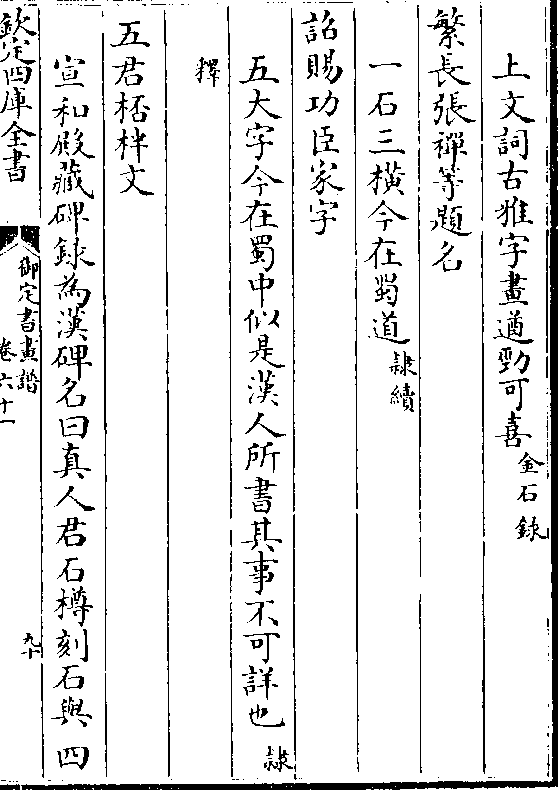 上文詞古雅字畫遒勁可喜金石錄
繁長張禪等題名
一石三橫今在蜀道隸續
詔賜功臣家字
五大字今在蜀中似是漢人所書其事不可詳也隸
釋
五君桮柈文
宣和殿藏碑錄為漢碑名曰真人君石樽刻石與四
欽定四庫全書
御定書畫譜
卷六十一
九十